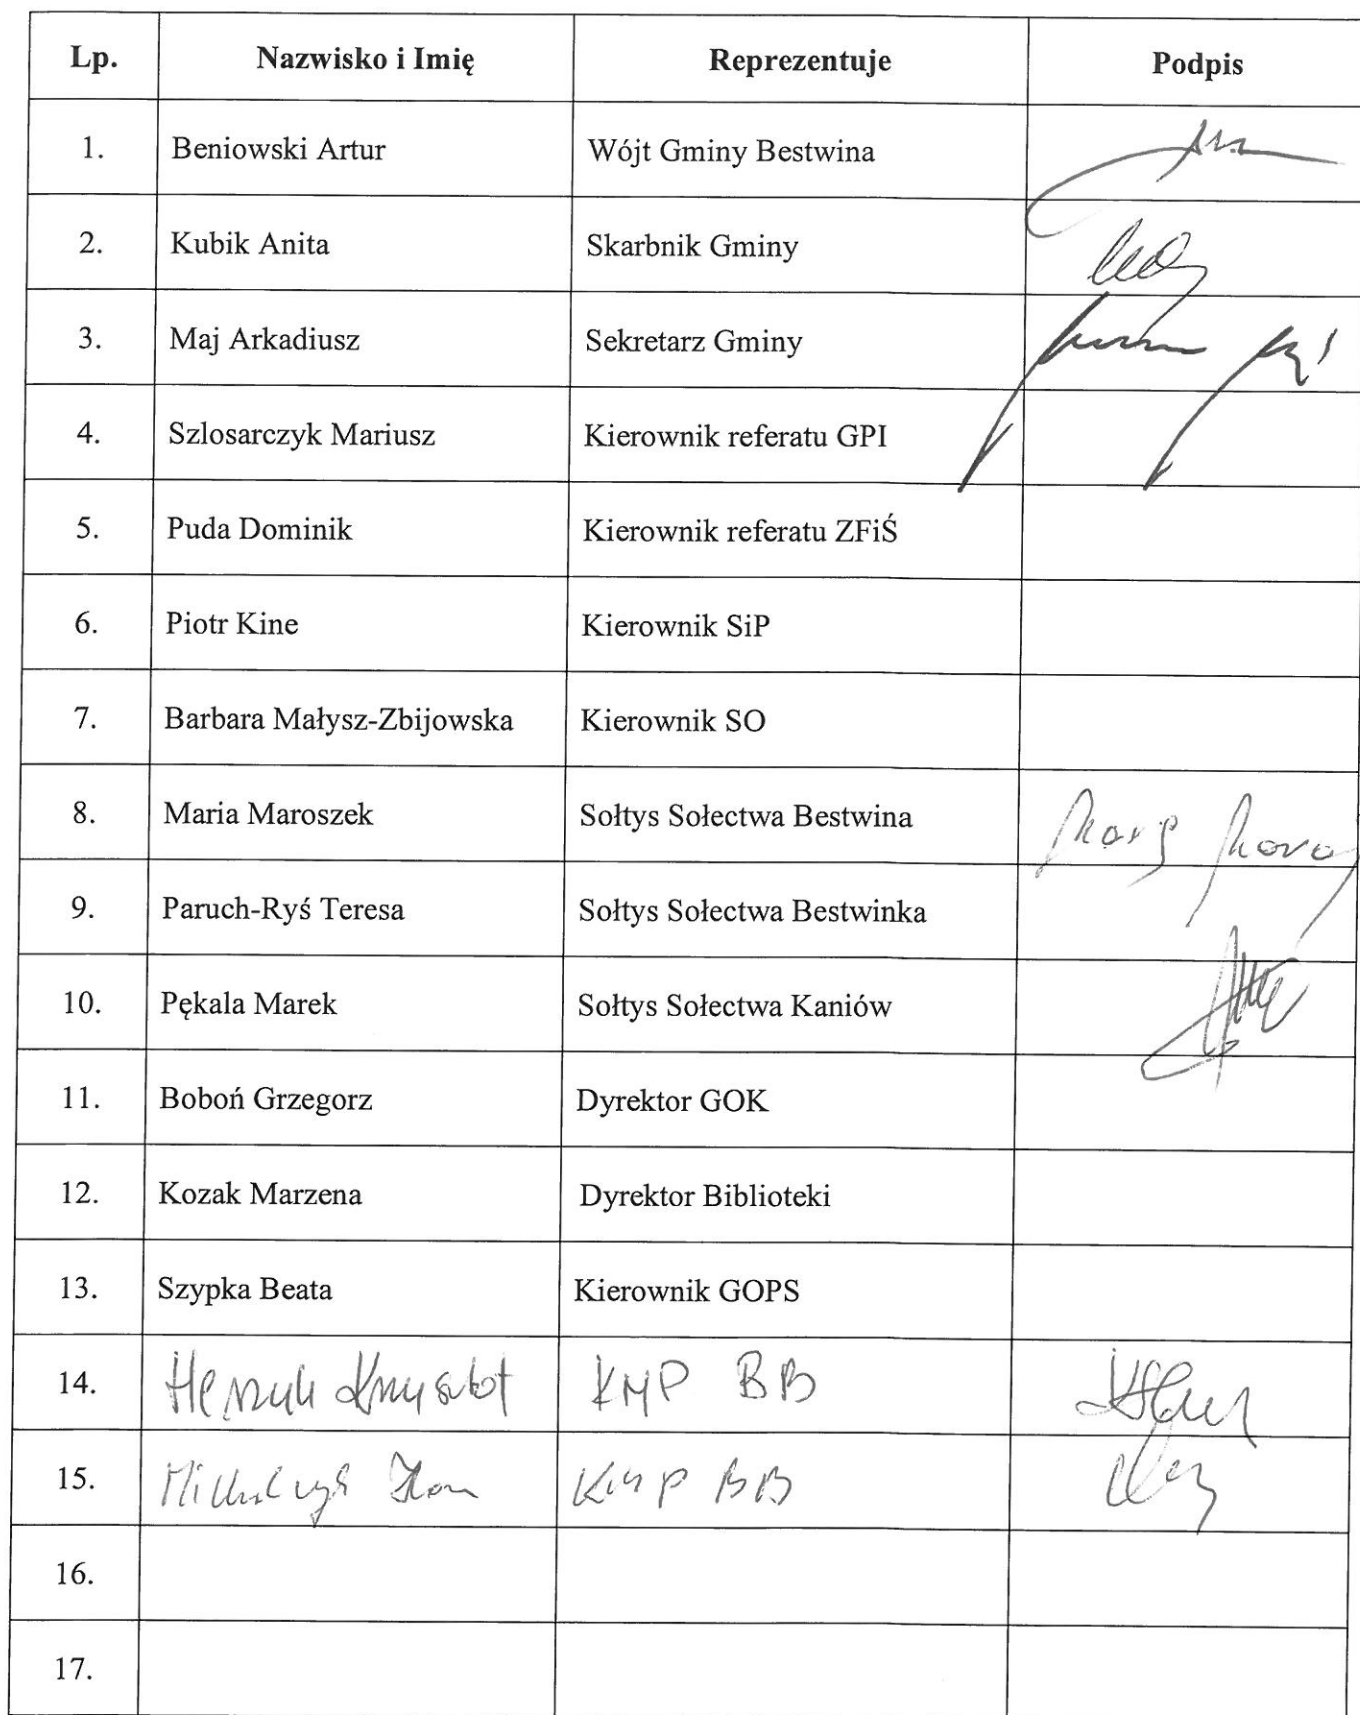 Lp. Nazwisko i Imię Reprezentuje Podpis
1. Beniowski Artur Wójt Gminy Bestwina
2. Kubik Anita Skarbnik Gminy
3. Maj Arkadiusz Sekretarz Gminy
4. Szlosarczyk Mariusz Kierownik referatu GPI
5. Puda Dominik Kierownik referatu ZFiŚ
6. Piotr Kine Kierownik SiP
7. Barbara Małysz-Zbijowska Kierownik SO
8. Maria Maroszek Sołtys Sołectwa Bestwina
9. Paruch-Ryś Teresa Sołtys Sołectwa Bestwinka
10. Pękala Marek Sołtys Sołectwa Kaniów
11. Boboń Grzegorz Dyrektor GOK
12. Kozak Marzena Dyrektor Biblioteki
13. Szypka Beata Kierownik GOPS
14. KMP BB
15. KMP BB
16.
17.